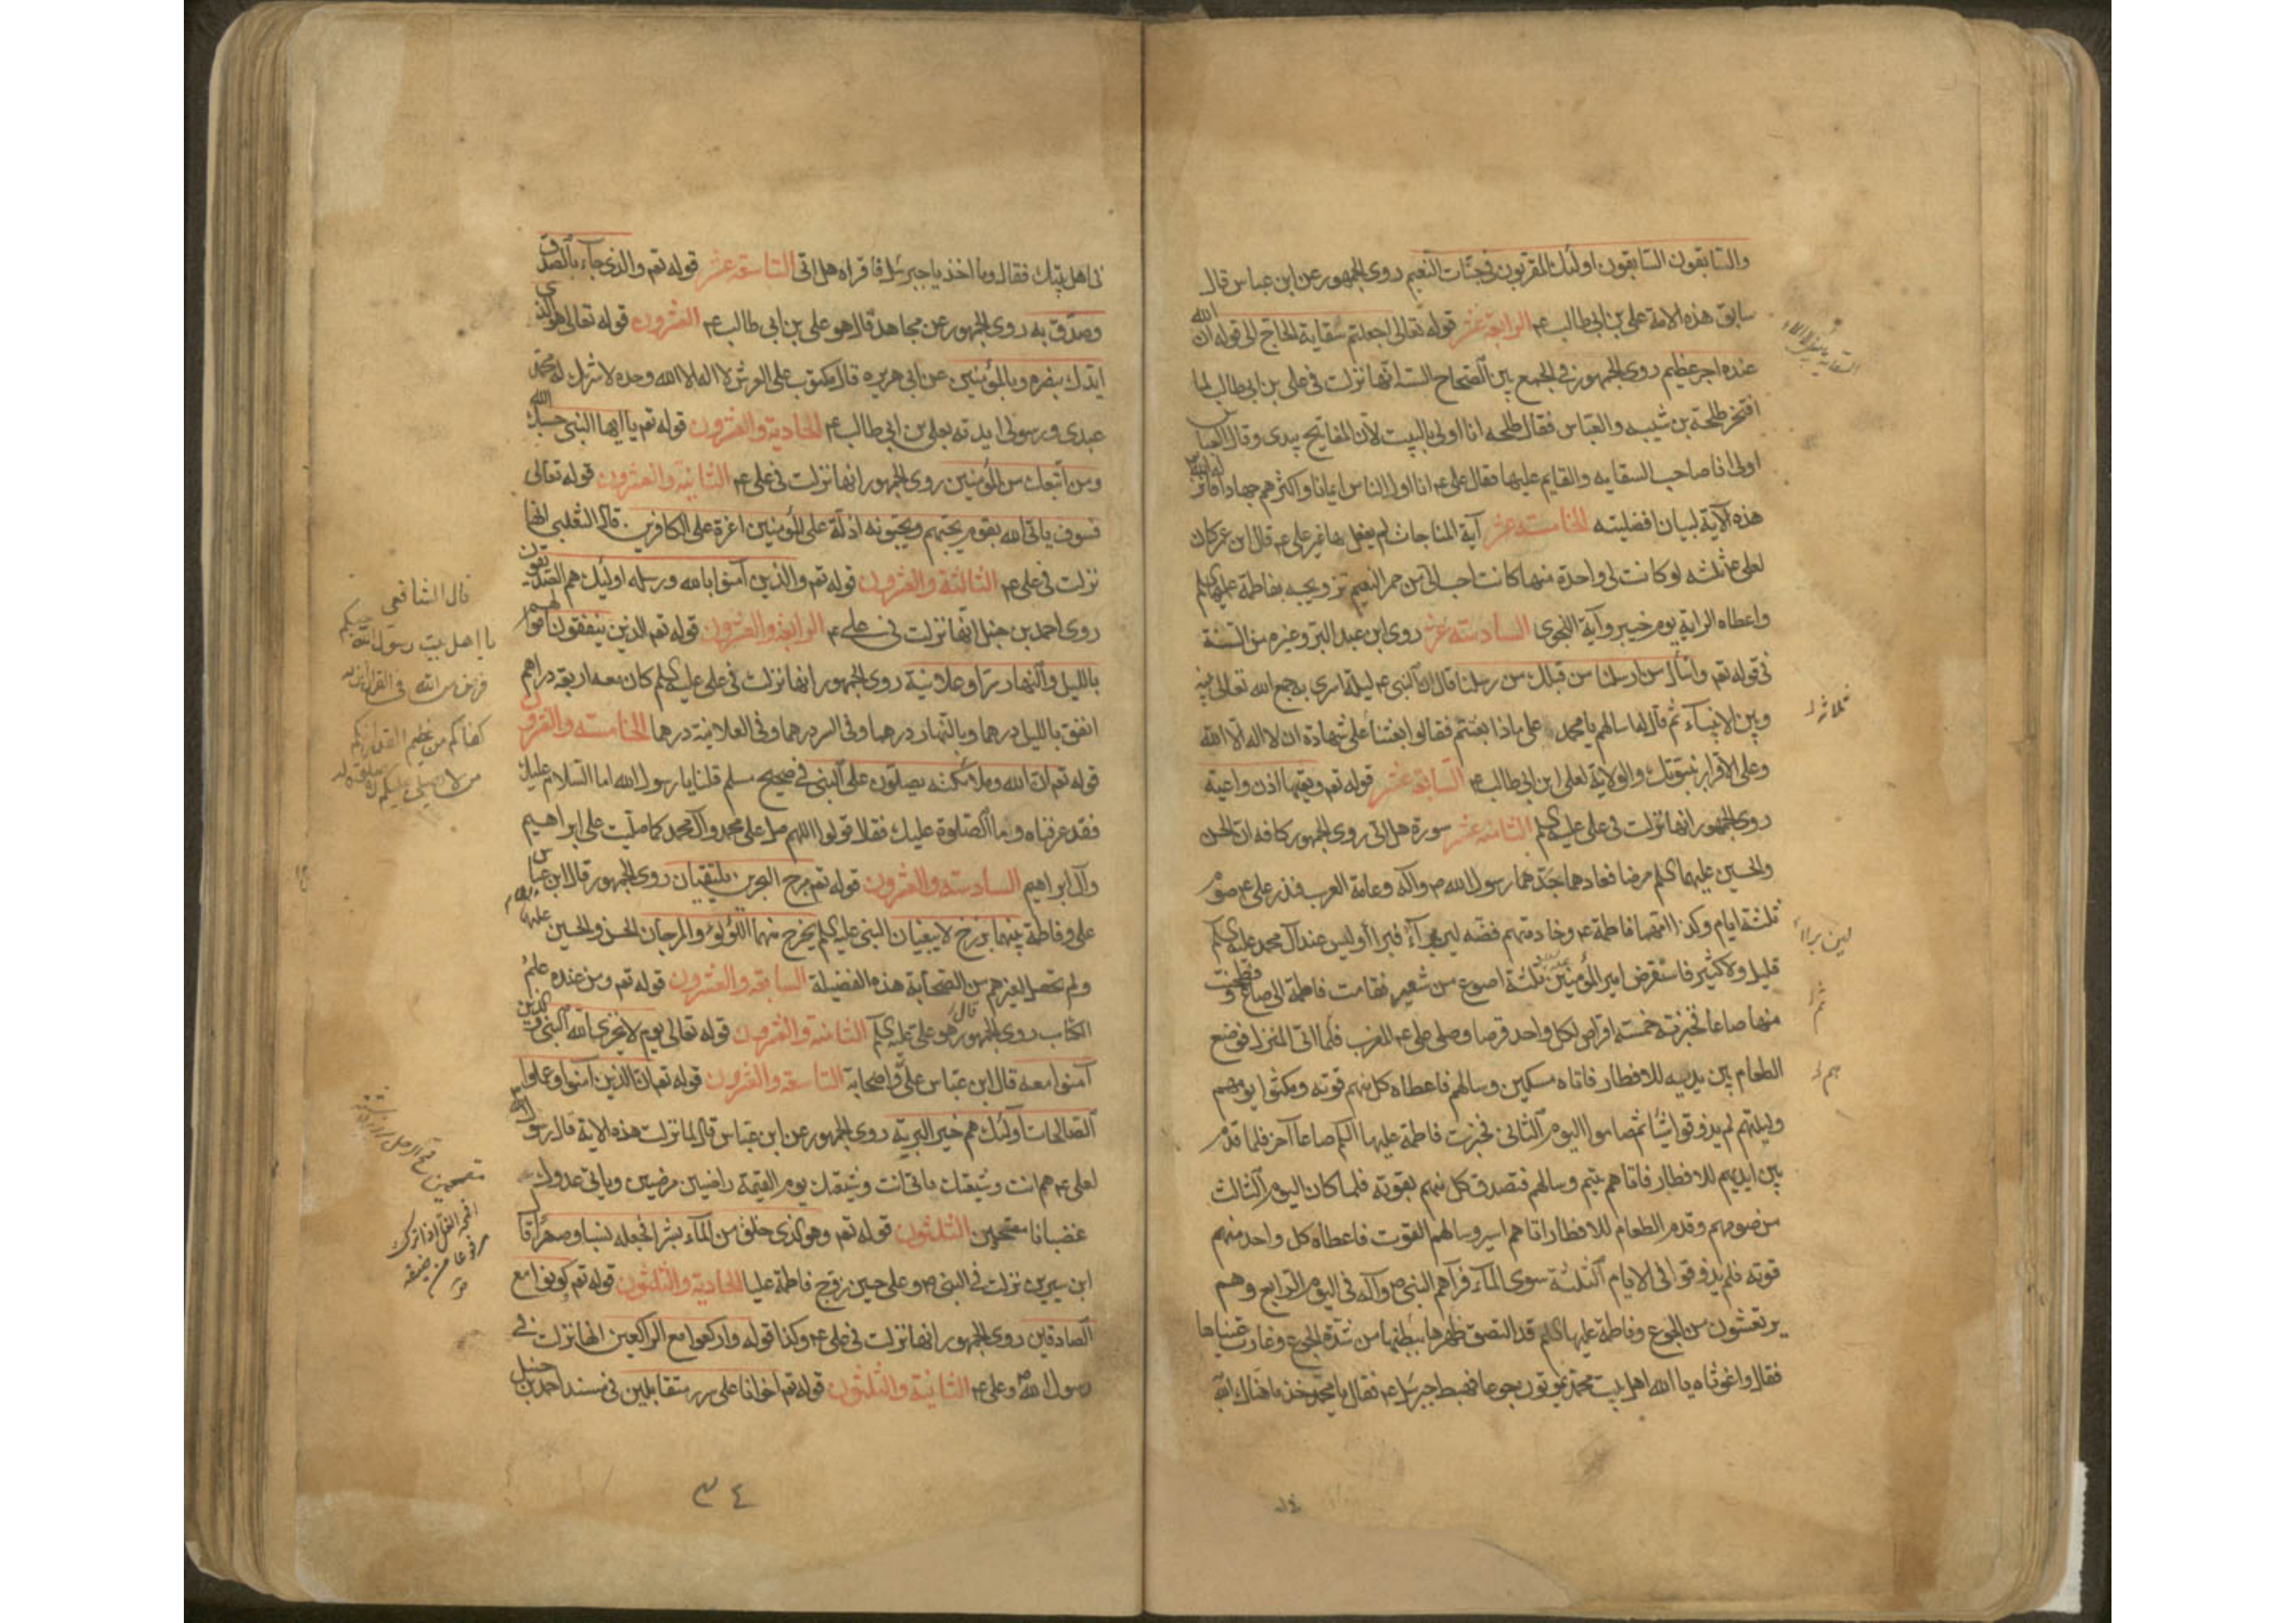 والسابقون السابقون اولئك المقربون في جنات النعيم روى الجمهور عن ابن عباس قال
سابق هذه الامة علي بن ابي طالب ع الرابعة عشر قوله تعالى اجعلتم سقاية الحاج الى قوله ان الله
عنده اجر عظيم روى الجمهور في الجمع بين الصحاح الستة انها نزلت في علي بن ابي طالب لما
افتخر طلحة بن شيبه والعباس فقال طلحه انا اولى بالبيت لأن المفاتيح بيدي وقال العباس
اولى انا صاحب السقايه والقايم عليها فقال علي ع انا اول الناس ايمانا واكثرهم جهادا فانزل الله
هذه الآية لبيان افضليته الخامسة عشر آية المناجات لم يفعل بها غير علي ع قال ابن عمر كان
لعلي ثلثه لو كانت لي واحدة منها كانت احب الي من حمر النعيم تزويجه بفاطمة عليها السلم
واعطاه الراية يوم خيبر وآية النجوى السادسة عشر روى ابن عبد البر وغيره من السنة
في قوله تعم واسأل من ارسلنا من قبلك من رسلنا قال ان النبي ع ليلة اسري به جمع الله تعالى بينه
وبين الانبياء ثم قال لها سالهم يا محمد على ماذا بعثتم فقالوا بعثنا على شهادة ان لا اله الا الله
وعلى الاقرار بنبوتك والولاية لعلي ابن ابي طالب ع السابعة عشر قوله تعم وتعيها اذن واعية
روى الجمهور انها نزلت في علي عليه السلم الثامنة عشر سورة هل اتى روى الجمهور كافه ان الحسن
والحسين عليهما السلم مرضا فعادهما جدهما رسول الله ص وآله وعامة العرب فنذر علي ع صوم
ثلثة ايام وكذا امهما فاطمة ع وخادمتهم فضه لئن برآء فبرأ وليس عند آل محمد عليه السلم
قليل ولا كثير فاستقرض امير المؤمنين ثلثة اصوع من شعير فقامت فاطمة الى صاع فطحنت و
منها صاعا فخبزته خمسة اقراص لكل واحد قرصا وصلى علي ع المغرب فلما اتى المنزل فوضع
الطعام بين يديه للافطار فاتاه مسكين وسالهم فاعطاه كل منهم قوته ومكثوا يومهم
وليلتهم لم يذوقوا شيئا ثم صاموا اليوم الثاني فخبزت فاطمة عليها السلم صاعا آخر فلما قدم
بين ايديهم للافطار فاتاهم يتيم وسالهم فتصدق كل منهم بقوته فلما كان اليوم الثالث
من صومهم وقدم الطعام للافطار اتاهم اسير وسالهم القوت فاعطاه كل واحد منهم
قوته فلم يذوقوا في الايام الثلثة سوى الماء فرآهم النبي ص وآله في اليوم الرابع وهم
يرتعشون من الجوع وفاطمة عليها السلم قد التصق ظهرها ببطنها من شدة الجوع وغارت عيناها
فقال واغوثاه يا الله اهل بيت محمد يموتون جوعا فهبط جبرئيل ع فقال يا محمد خذ ما هناك الله
ثلاثه
لئن برأا
ثم
هم
في اهل بيتك فقال وما اخذ يا جبرئيل فاقراه هل اتى التاسعة عشر قوله تعم والذي جاء بالصدق
وصدق به روى الجمهور عن مجاهد قال هو علي بن ابي طالب ع العشرون قوله تعالى هو الذي
ايدك بنصره وبالمؤمنين عن ابي هريره قال مكتوب على العرش لا اله الا الله وحده لا شريك له محمد
عبدي ورسولي ايدته بعلي بن ابي طالب ع الحادية والعشرون قوله تعم يا ايها النبي حسبك الله
ومن اتبعك من المؤمنين روى الجمهور انها نزلت في علي ع الثانية والعشرون قوله تعالى
فسوف ياتي الله بقوم يحبهم ويحبونه اذلة على المؤمنين اعزة على الكافرين قال الثعلبي انها
نزلت في علي ع الثالثة والعشرون قوله تعم والذين آمنوا بالله ورسله اولئك هم الصديقون
روى احمد بن حنبل انها نزلت في علي ع الرابعة والعشرون قوله تعم الذين ينفقون اموالهم
بالليل والنهار سرا وعلانية روى الجمهور انها نزلت في علي عليه السلم كان معه اربعة دراهم
انفق بالليل درهما وبالنهار درهما وفي السر درهما وفي العلانية درهما الخامسة والعشرون
قوله تعم ان الله وملائكته يصلون على النبي في صحيح مسلم قلنا يا رسول الله اما السلام عليك
فقد عرفناه واما الصلوة عليك فقال قولوا اللهم صل على محمد وآل محمد كما صليت على ابراهيم
وآل ابراهيم السادسة والعشرون قوله تعم مرج البحرين يلتقيان روى الجمهور قال ابن عباس
علي وفاطمة بينهما برزخ لا يبغيان النبي عليه السلم يخرج منهما اللؤلؤ والمرجان الحسن والحسين عليهما
ولم تحصل لغيرهم من الصحابة هذه الفضيلة السابعة والعشرون قوله تعم ومن عنده علم
الكتاب روى الجمهور قال هو علي عليه السلم الثامنة والعشرون قوله تعالى يوم لا يخزي الله النبي والذين
آمنوا معه قال ابن عباس علي واصحابه التاسعة والعشرون قوله تعم ان الذين آمنوا وعملوا
الصالحات اولئك هم خير البرية روى الجمهور عن ابن عباس قال لما نزلت هذه الاية قال رسول الله
لعلي ع هم انت وشيعتك تاتي انت وشيعتك يوم القيمة راضيين مرضيين وياتي عدوك
غضبانا مقمحين الثلثون قوله تعم وهو الذي خلق من الماء بشرا فجعله نسبا وصهرا قال
ابن سيرين نزلت في النبي ص وعلي حين زوج فاطمة عليا الحادية والثلثون قوله تعم كونوا مع
الصادقين روى الجمهور انها نزلت في علي ع وكذا قوله واركعوا مع الراكعين انها نزلت في
رسول الله ص وعلي ع الثانية والثلثون قوله تعم اخوانا على سرر متقابلين في مسند احمد بن حنبل
قال الشافعي
يا اهل بيت رسول الله حبكم
فرض من الله في القرآن انزله
كفاكم من عظيم القدر انكم
من لا يصلي عليكم لا صلوة له
٣٤